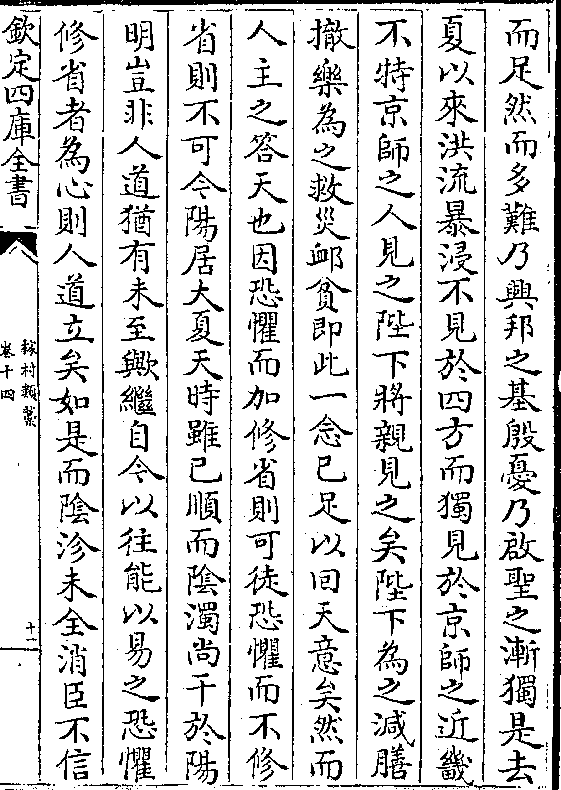 而足然而多難乃興邦之基殷憂乃啟聖之漸獨是去
夏以來洪流暴浸不見於四方而獨見於京師之近畿
不特京師之人見之陛下將親見之矣陛下為之減膳
撤樂為之救災䘏貧即此一念已足以囘天意矣然而
人主之答天也因恐懼而加修省則可徒恐懼而不修
省則不可今陽居大夏天時雖已順而陰濁尚干於陽
明豈非人道猶有未至歟繼自今以往能以易之恐懼
修省者為心則人道立矣如是而陰沴未全消臣不信
欽定四庫全書
稼村類藁
卷十四
十一